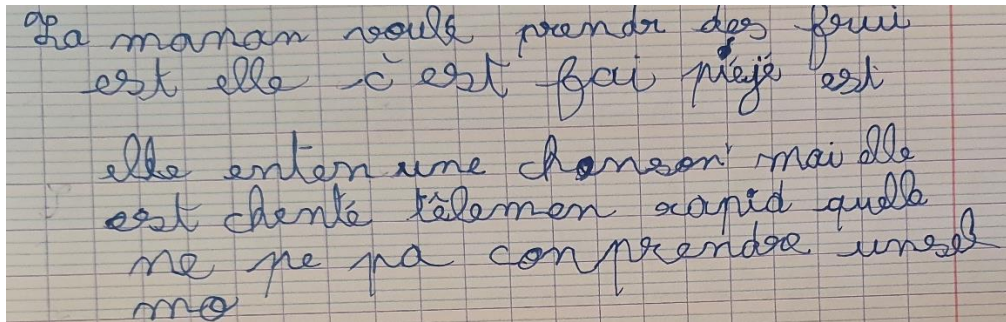 La manan voulé prendr des frui
est elle c'est fai piéjé est
elle enten une chonson mai elle
est chenté têlemen rapid quelle
ne pe pa comprendre unsel
mo